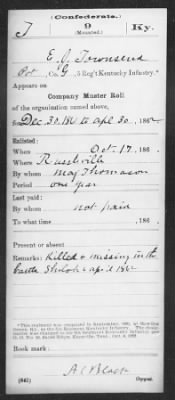 (Confederate.)
T 9 Ky.
(Mounted.)
E. J. Townsend
Pvt, Co. G, 5 Reg't Kentucky Infantry.*
Appears on
Company Muster Roll
of the organization named above,
for Dec 30, 186 to Apl 30, 1862
Enlisted:
When Oct 17, 186
Where Russelville
By whom Maj Thomason
Period one year
Last paid:
By whom not paid
To what time , 186 .
Present or absent
Remarks: Killed or missing in the
battle Shiloh Apl 1862
Book mark:
A C Black
(642) Copyist.